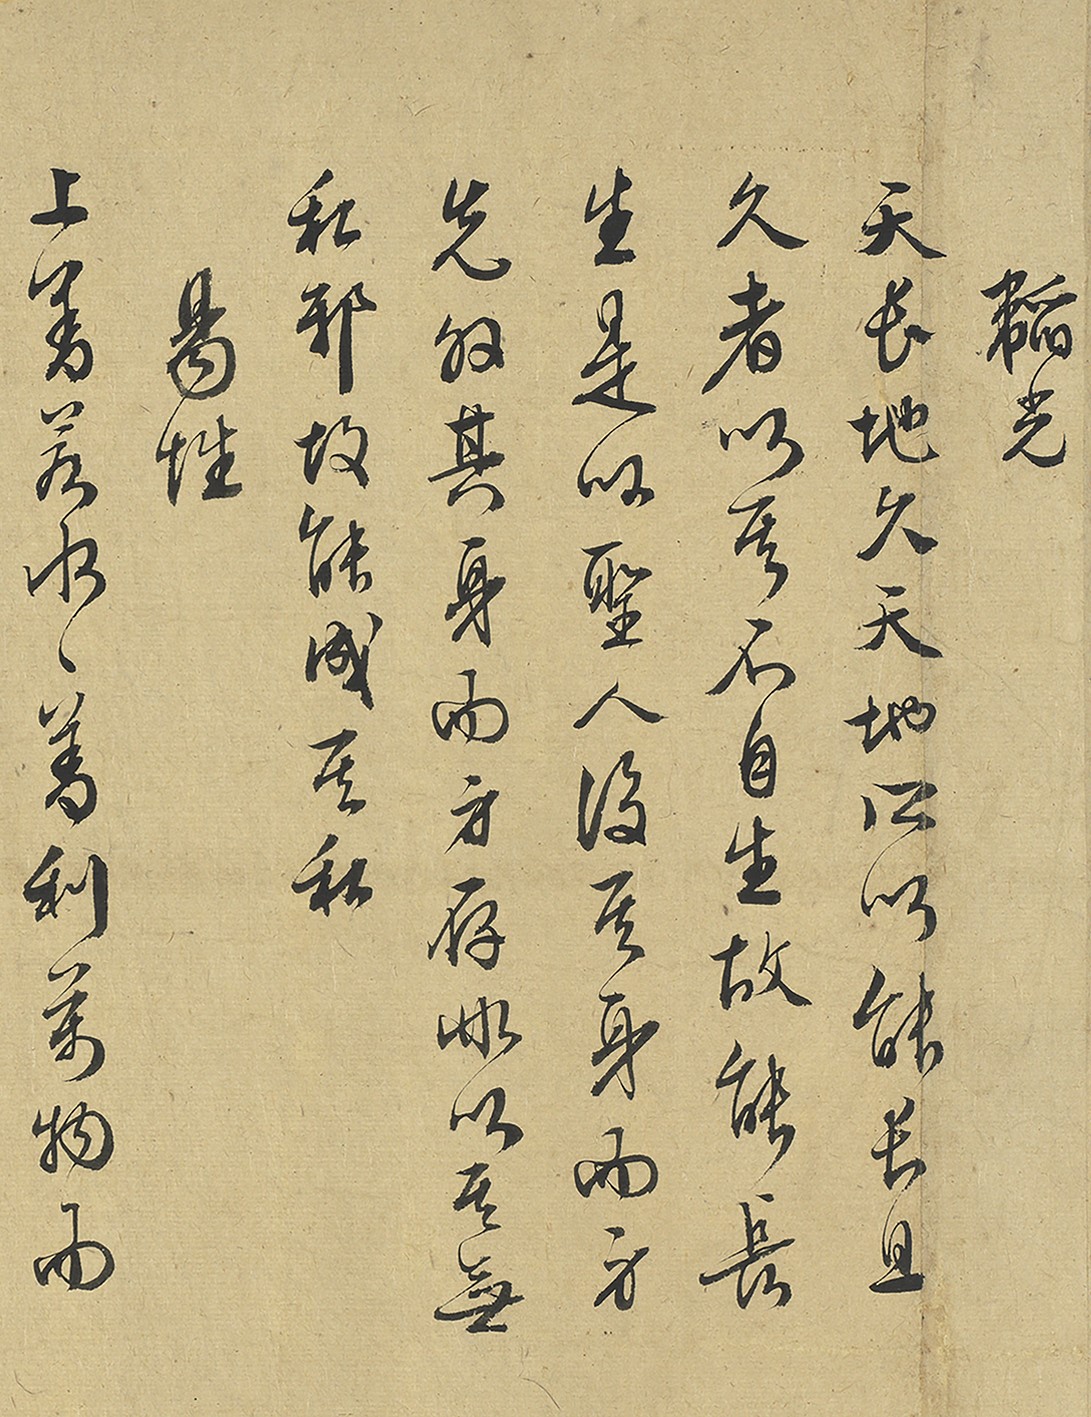 韜光
天長地久天地所以能長且
久者以其不自生故能長
生是以聖人後其身而身
先外其身而身存非以其無
私邪故能成其私
易性
上善若水〻善利萬物而